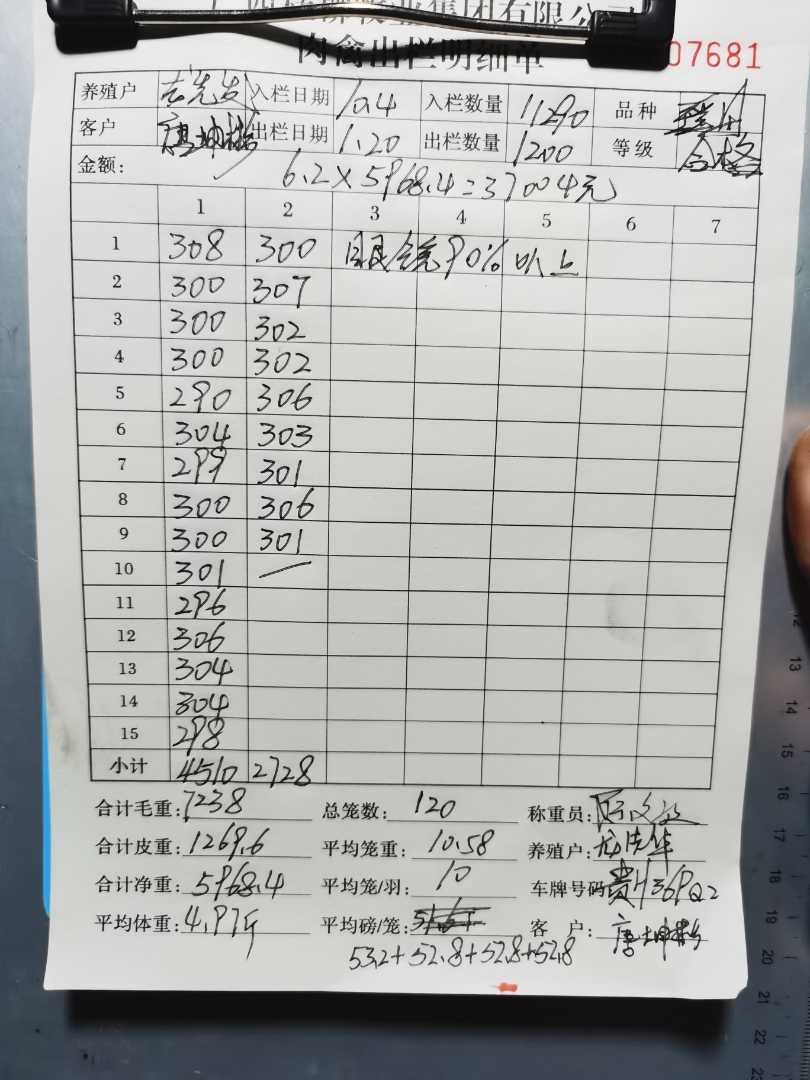 集团有限公司
肉禽出栏明细单 07681
养殖户 入栏日期 10.4 入栏数量 11290 品种
客户 唐坤彬 出栏日期 1.20 出栏数量 1200 等级 合格
金额: 6.2×5968.4=37004元
1 2 3 4 5 6 7
1 308 300 眼合毛90%以上
2 300 307
3 300 302
4 300 302
5 290 306
6 304 303
7 299 301
8 300 306
9 300 301
10 301 —
11 296
12 306
13 304
14 304
15 298
小计 4510 2728
合计毛重: 7238 总笼数: 120 称重员:
合计皮重: 1269.6 平均笼重: 10.58 养殖户:
合计净重: 5968.4 平均笼/羽: 10 车牌号码: 贵
平均体重: 4.97斤 平均磅/笼: 客户: 唐坤彬
53.2+52.8+52.8+52.8